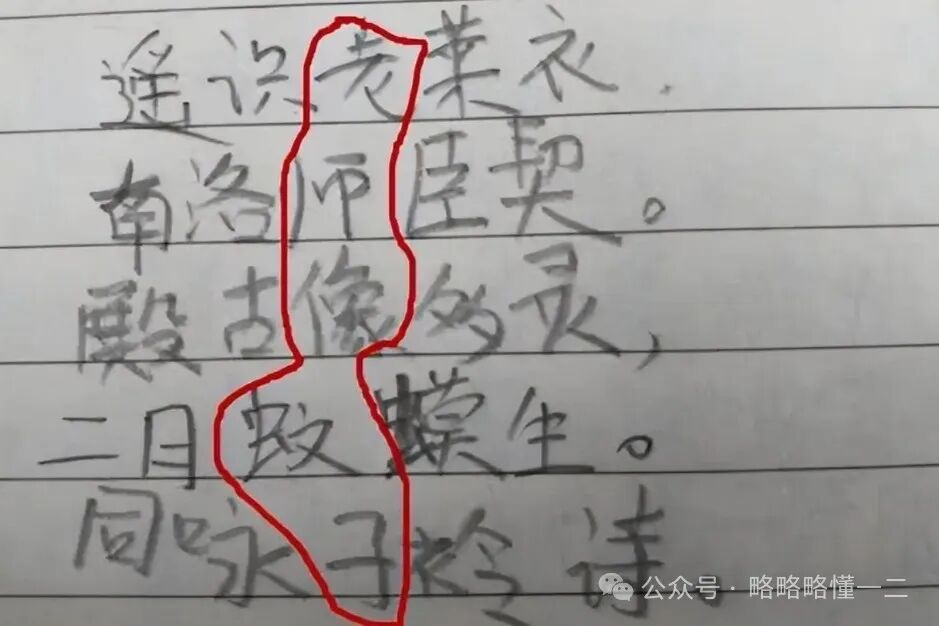 遥识老莱衣.
南洛师臣契。
殿古像多灵,
二月蚊蟆生。
同咏子衿诗.
公众号·略略略懂一二